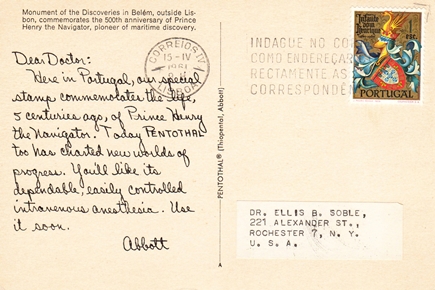 Monument of the Discoveries in Belém, outside Lis-
bon, commemorates the 500th anniversary of Prince
Henry the Navigator, pioneer of maritime discovery.
Dear Doctor:
Here in Portugal, our special
stamp commemorates the life,
5 centuries ago, of Prince Henry
the Navigator. Today PENTOTHAL
too has charted new worlds of
progress. You'll like its
dependable, easily controlled
intravenous anesthesia. Use
it soon.
Abbott
PENTOTHAL® (Thiopental, Abbott)
A
CORREIOS
15-IV
1961
LISBOA
INDAGUE NO
COMO ENDEREÇAR
RECTAMENTE AS
CORRESPONDÊN
Infante
dom
Henrique
1
esc.
PORTUGAL
DR. ELLIS B. SOBLE,
221 ALEXANDER ST.,
ROCHESTER 7, N. Y.
U. S. A.